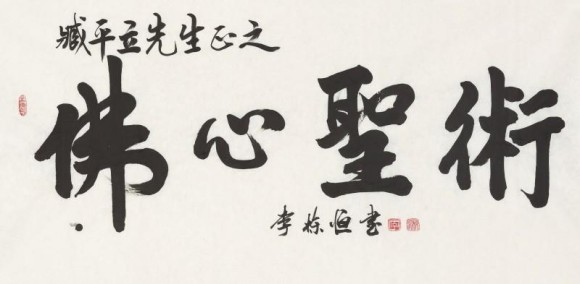 臧平立先生正之
佛心聖術
李栋恒书